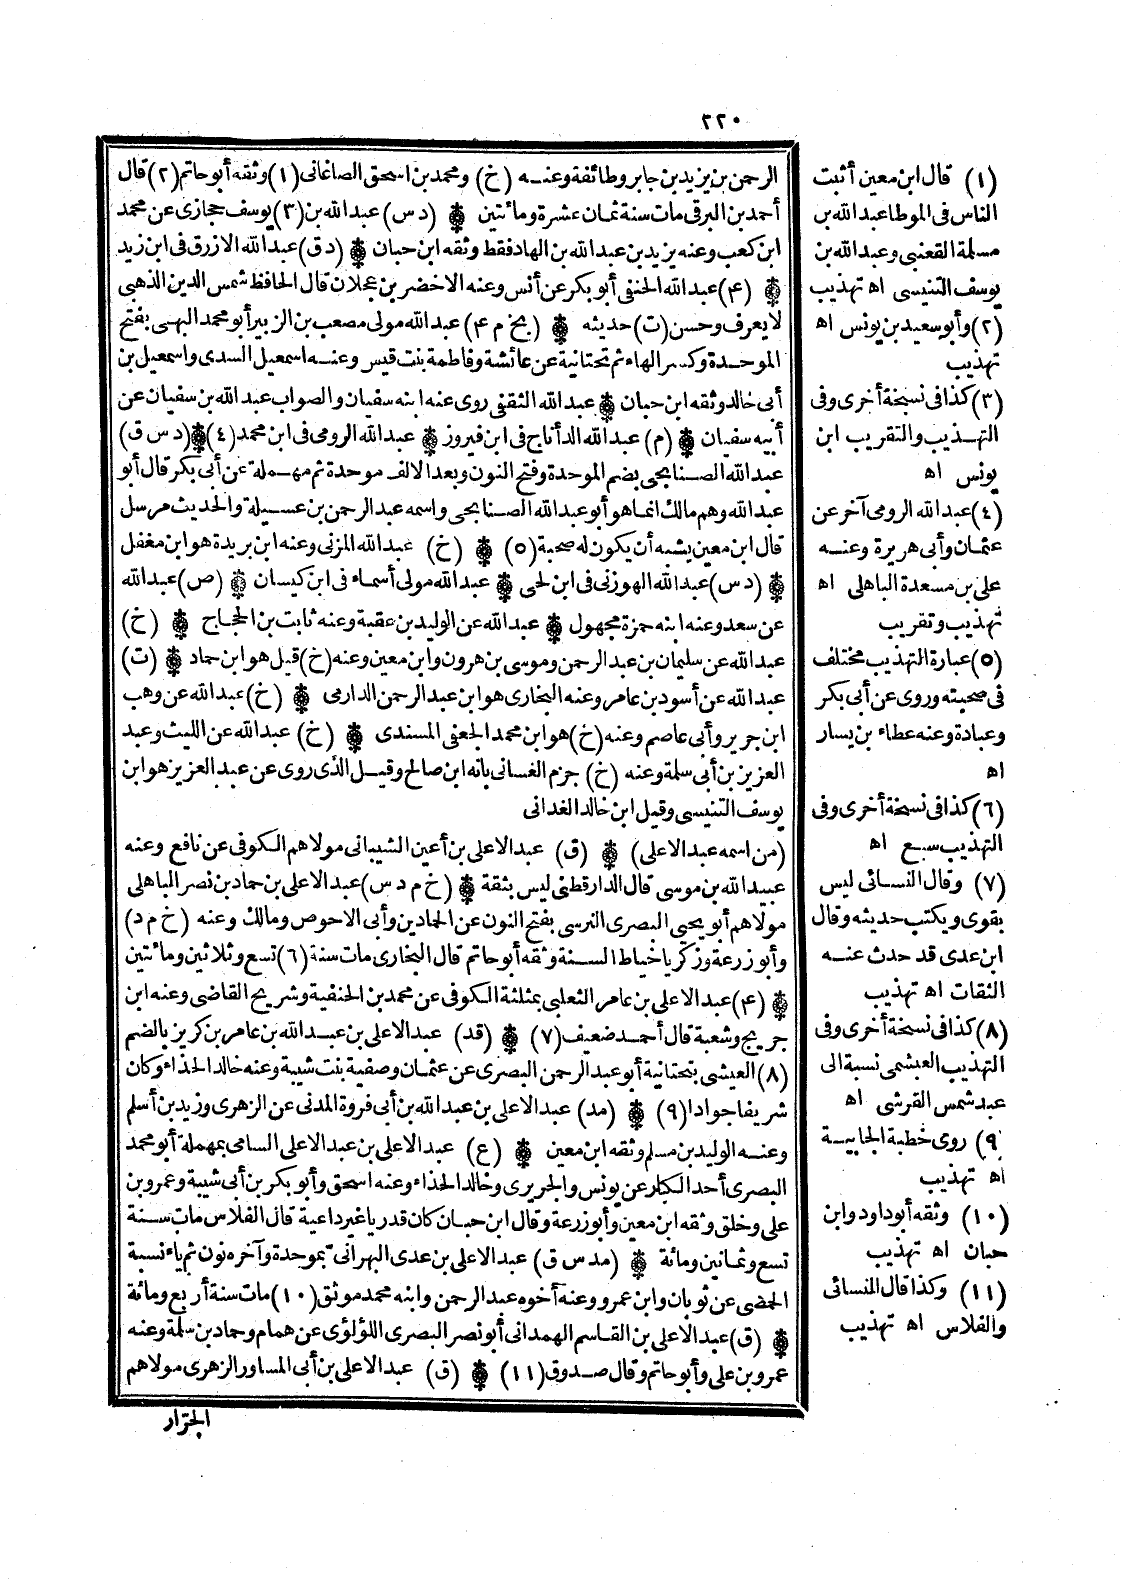 ٢٢٠
الرحمن بن يزيد بن جابر وطائفة وعنه (خ) ومحمد بن اسحق الصاغانى (١) وثقه أبو حاتم (٢) قال
أحمد بن البرقى مات سنة ثمان عشرة ومائتين ❁ (د س) عبد الله بن (٣) يوسف حجازى عن محمد
ابن كعب وعنه يزيد بن عبد الله بن الهاد فقط وثقه ابن حبان ❁ (د ق) عبد الله الازرق فى ابن زيد
❁ (٤) عبد الله الحنفى أبو بكر عن أنس وعنه الاخضر بن عجلان قال الحافظ شمس الدين الذهبى
لا يعرف وحسن (ت) حديثه ❁ (بخ م ٤) عبد الله مولى مصعب بن الزبير أبو محمد البهى بفتح
الموحدة وكسر الهاء ثم تحتانية عن عائشة وفاطمة بنت قيس وعنه اسمعيل السدى واسمعيل بن
أبى خالد وثقه ابن حبان ❁ عبد الله الثقفى روى عنه ابنه سفيان والصواب عبد الله بن سفيان عن
أبيه سفيان ❁ (م) عبد الله الدأناج فى ابن فيروز ❁ عبد الله الرومى فى ابن محمد (٤) ❁ (د س ق)
عبد الله الصنابحى بضم الموحدة وفتح النون وبعد الالف موحدة ثم مهملة عن أبى بكر قال أبو
عبد الله وهم مالك انما هو أبو عبد الله الصنابحى واسمه عبد الرحمن بن عسيلة والحديث مرسل
قال ابن معين يشبه أن يكون له صحبة (٥) ❁ (خ) عبد الله المزنى وعنه ابن بريدة هو ابن مغفل
❁ (د س) عبد الله الهوزنى فى ابن لحى ❁ عبد الله مولى أسماء فى ابن كيسان ❁ (ص) عبد الله
عن سعد وعنه ابنه حمزة مجهول ❁ عبد الله عن الوليد بن عقبة وعنه ثابت بن الحجاج ❁ (خ)
عبد الله عن سليمان بن عبد الرحمن وموسى بن هرون وابن معين وعنه (خ) قيل هو ابن حماد ❁ (ت)
عبد الله عن أسود بن عامر وعنه البخارى هو ابن عبد الرحمن الدارمى ❁ (خ) عبد الله عن وهب
ابن جرير وأبى عاصم وعنه (خ) هو ابن محمد الجعفى المسندى ❁ (خ) عبد الله عن الليث وعبد
العزيز بن أبى سلمة وعنه (خ) جزم الغسانى بانه ابن صالح وقيل الذى روى عن عبد العزيز هو ابن
يوسف التنيسى وقيل ابن خالد الغدانى
(من اسمه عبد الاعلى) ❁ (ق) عبد الاعلى بن أعين الشيبانى مولاهم الكوفى عن نافع وعنه
عبيد الله بن موسى قال الدارقطنى ليس بثقة ❁ (خ م د س) عبد الاعلى بن حماد بن نصر الباهلى
مولاهم أبو يحيى البصرى النرسى بفتح النون عن الحمادين وأبى الاحوص ومالك وعنه (خ م د)
وأبو زرعة وزكريا خياط السنة وثقه أبو حاتم قال البخارى مات سنة (٦) تسع وثلاثين ومائتين
❁ (٤) عبد الاعلى بن عامر الثعلبى بمثلثة الكوفى عن محمد بن الحنفية وشريح القاضى وعنه ابن
جريج وشعبة قال أحمد ضعيف (٧) ❁ (قد) عبد الاعلى بن عبد الله بن عامر بن كريز بالضم
(٨) العيشى بتحتانية أبو عبد الرحمن البصرى عن عثمان وصفية بنت شيبة وعنه خالد الحذاء وكان
شريفا جوادا (٩) ❁ (مد) عبد الاعلى بن عبد الله بن أبى فروة المدنى عن الزهرى وزيد بن أسلم
وعنه الوليد بن مسلم وثقه ابن معين ❁ (ع) عبد الاعلى بن عبد الاعلى السامى بمهملة أبو محمد
البصرى أحد الكبار عن يونس والجريرى وخالد الحذاء وعنه اسحق وأبو بكر بن أبى شيبة وعمرو بن
على وخلق وثقه ابن معين وأبو زرعة وقال ابن حبان كان قدريا غير داعية قال الفلاس مات سنة
تسع وثمانين ومائة ❁ (مد س ق) عبد الاعلى بن عدى البهرانى بموحدة وآخره نون ثم ياء نسبة
الحمصى عن ثوبان وابن عمرو وعنه أخوه عبد الرحمن وابنه محمد موثق (١٠) مات سنة أربع ومائة
❁ (ق) عبد الاعلى بن القاسم الهمدانى أبو نصر البصرى اللؤلؤى عن همام وحماد بن سلمة وعنه
عمرو بن على وأبو حاتم وقال صدوق (١١) ❁ (ق) عبد الاعلى بن أبى المساور الزهرى مولاهم
الجرّار
(١) قال ابن معين أثبت
الناس فى الموطا عبد الله بن
مسلمة القعنبى وعبد الله بن
يوسف التنيسى اه تهذيب
(٢) وأبو سعيد بن يونس اه
تهذيب
(٣) كذا فى نسخة أخرى وفى
التهذيب والتقريب ابن
يونس اه
(٤) عبد الله الرومى آخر عن
عثمان وأبى هريرة وعنه
على بن مسعدة الباهلى اه
تهذيب وتقريب
(٥) عبارة التهذيب مختلف
فى صحبته وروى عن أبى بكر
وعبادة وعنه عطاء بن يسار
اه
(٦) كذا فى نسخة أخرى وفى
التهذيب سبع اه
(٧) وقال النسائى ليس
بقوى ويكتب حديثه وقال
ابن عدى قد حدث عنه
الثقات اه تهذيب
(٨) كذا فى نسخة أخرى وفى
التهذيب العبشمى نسبة الى
عبد شمس القرشى اه
(٩) روى خطبة الجابية
اه تهذيب
(١٠) وثقه أبو داود وابن
حبان اه تهذيب
(١١) وكذا قال النسائى
والفلاس اه تهذيب